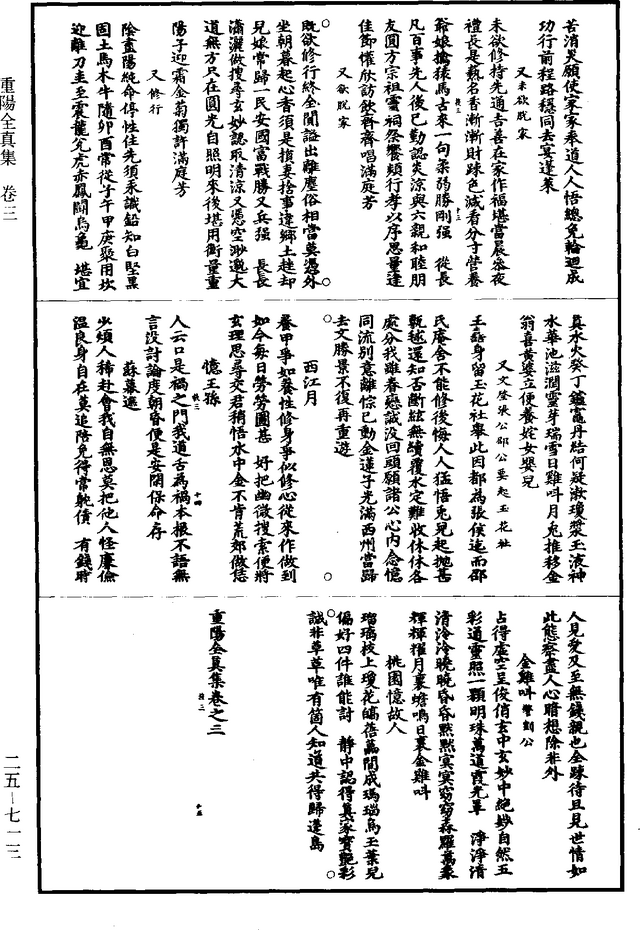 重陽全真集 卷三
苦消災願使家家奉道人人悟總免輪迴成
功行前程路穩同去宴蓬萊
又未欲脫家
未欲修持先通吉善在家作福堪當晨參夜
禮長是爇名香漸漸財疎色減看分寸營養
爺娘擒猿馬古來一句柔弱勝剛强 從長
凡百事先人後己勤認炎涼與六親和睦朋
友圓方宗祖靈祠祭饗頻行孝以序思量逢
佳節懽欣訪飲齊齊唱滿庭芳
又欲脫家
既欲修行終全閒諡出離塵俗相當莫憑外
坐朝暮起心香須是損妻捨事違鄉土趖却
兒娘常歸一民安國富戰勝又兵强 長長
瀟灑做搜尋玄妙認取清涼又憑空渺邈大
道無方只在圓光自照明來後堪用衡量重
陽子迎霜金菊獨許滿庭芳
又修行
陰盡陽純命停性住先須汞識鉛知白堅黑
固土馬木牛隨卯酉常從子午甲庚聚用坎
迎離刀圭至震龍兌虎赤鳳鬬烏龜 堪宜
真水火癸丁鑪竈丹結何疑漱瓊漿玉液神
水華池滋潤靈芽瑞雪日雞呌月兔推移金
翁喜黃婆立便養姹女嬰兒
又文登張公鄒公要起玉花社
王喆身留玉花社舉此因都為張侯迄而鄒
氏庵舍不能修後悔人人猛悟兎兒起拋甚
甎毬還知否斷絃無續覆水定難收休休各
處分我離眷戀誠没回頭願諸公心内念憶
同流別意離悰已動金蓮子光滿西州當歸
去文勝景不復再重遊
西江月
養甲爭如養性修身爭似修心從來作做到
如今每日勞勞圖甚 好把幽微搜索便將
玄理思尋交君稍悟水中金不肯荒郊做恁
憶王孫
人云口是禍之門我道舌為禍本根不語無
言没討論度朝昏便是安閑保命存
蘇幕遮
少煩人稀赴會我自無恩莫把他人怪廉儉
溫良身自在莫追陪免得常躭債 有錢時
人見愛及至無錢親也全疎待且見世情如
此態察盡人心暗想除非外
金雞呌 警劉公
占得虛空呈俊俏玄中玄妙中絕妙自然五
彩道靈照一顆明珠萬道霞光罩 淨淨清
清泠泠曉曉昏昏默默冥冥窈窈森羅萬象
輝輝耀月裏蟾鳴日裏金雞呌
桃園憶故人
瑠璃枝上瓊花皜蓓蕚間成瑪瑙烏玉葉兒
偏好四件誰能討 靜中認得真家寶艷彩
誠非草草唯有箇人知道共得歸蓬島
重陽全真集卷之三
二五—七一三